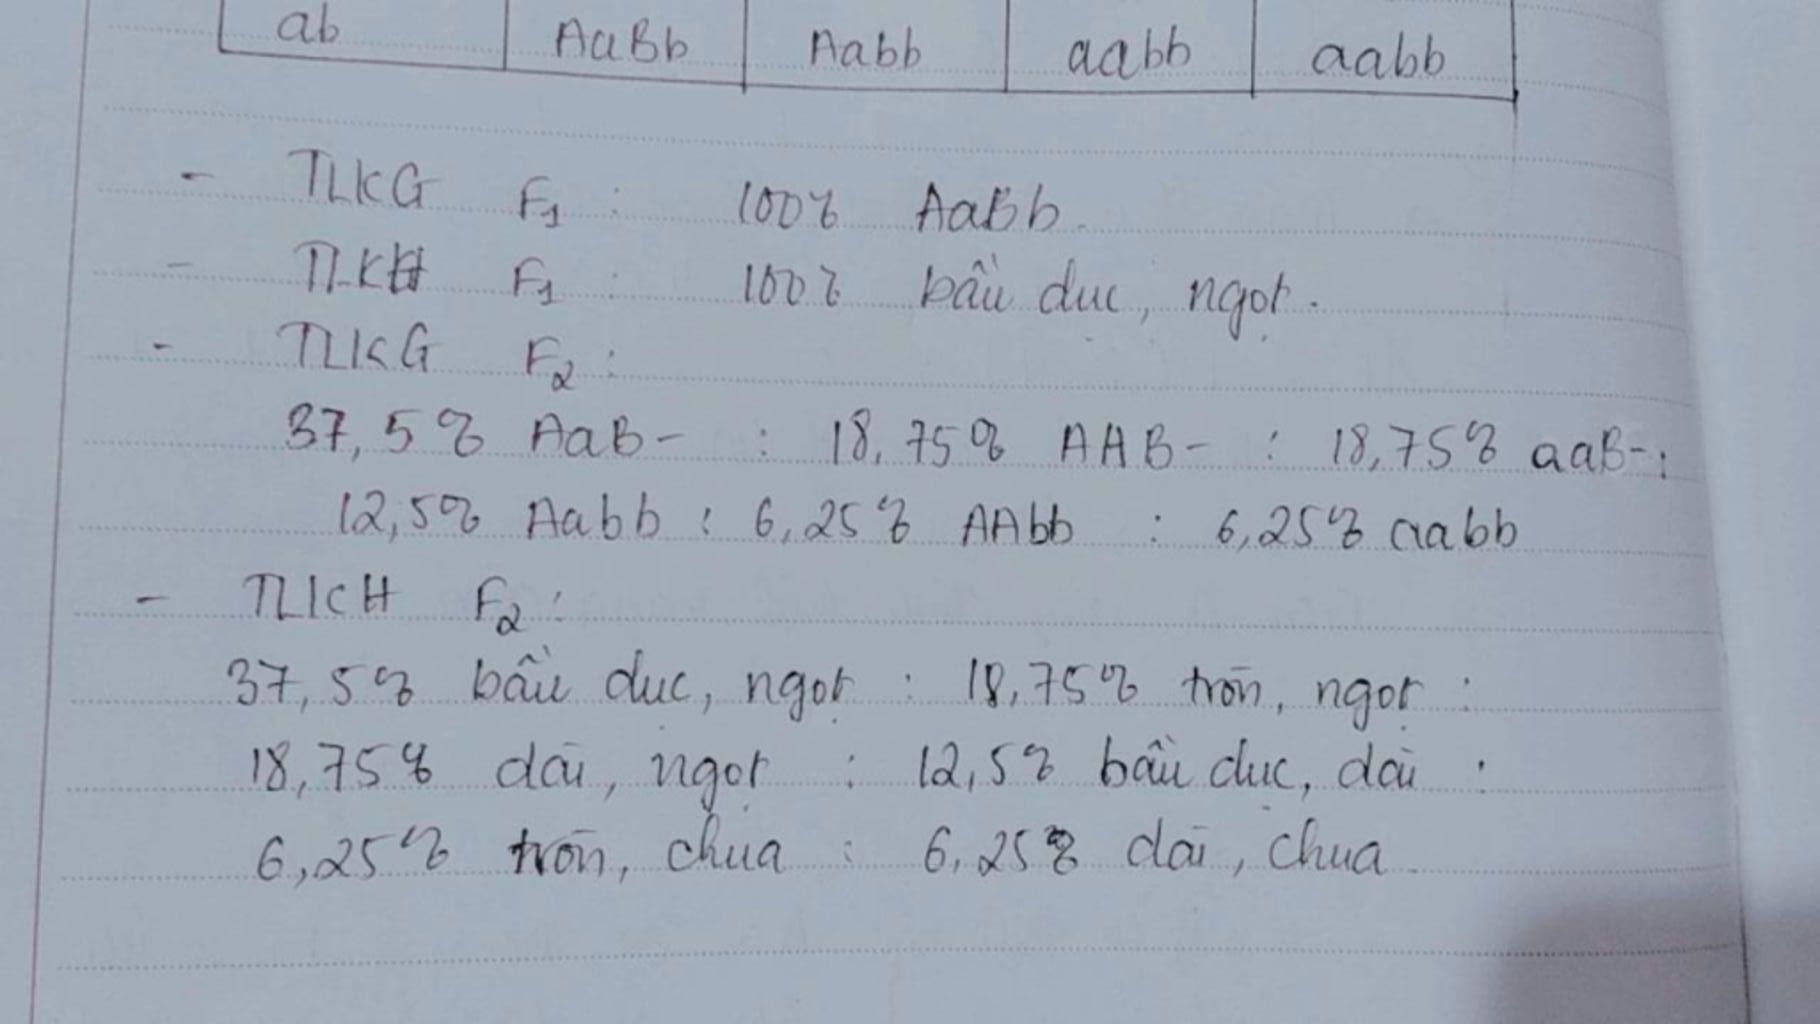 ab AaBb Aabb aabb aabb
- TLKG F1 : 100% AaBb.
- TLKH F1 : 100% bầu dục, ngọt.
- TLKG F2 :
37,5% AaB- : 18,75% AAB- : 18,75% aaB- :
12,5% Aabb : 6,25% AAbb : 6,25% aabb
- TLKH F2 :
37,5% bầu dục, ngọt : 18,75% tròn, ngọt :
18,75% dài, ngọt : 12,5% bầu dục, dài :
6,25% tròn, chua : 6,25% dài, chua